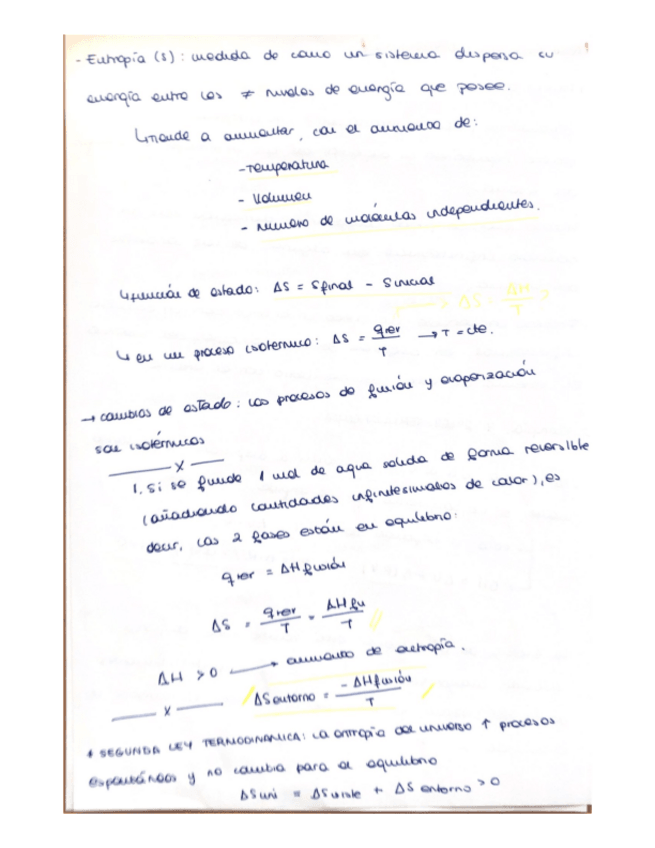 - Entropía (S): medida de como un sistema dispersa su
energía entre los ≠ niveles de energía que posee.
↳ tiende a aumentar, con el aumento de:
- Temperatura
- Volumen
- Número de moléculas independientes.
↳ función de estado: ΔS = Sfinal - Sinicial
ΔS = ΔH/T
↳ en un proceso isotérmico: ΔS = qrev/T → T = cte.
→ cambios de estado: los procesos de fusión y evaporización
son isotérmicos
——— x ———
1. Si se funde 1 mol de agua solida de forma reversible
(añadiendo cantidades infinitesimales de calor), es
decir, las 2 fases están en equilibrio:
qrev = ΔHfusión
ΔS = qrev/T = ΔHfu/T //
ΔH > 0 → aumento de entropía.
——— x ——— / ΔSentorno = -ΔHfusión/T /
* SEGUNDA LEY TERMODINÁMICA: La entropía del universo ↑ procesos
espontáneos y no cambia para el equilibrio
ΔSuni = ΔSsiste + ΔSentorno > 0